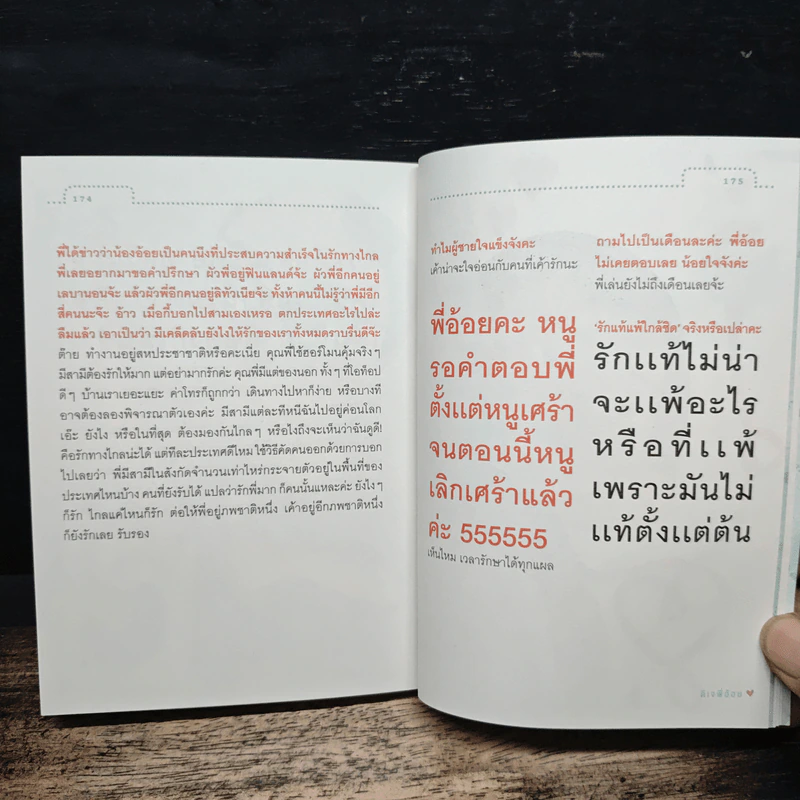 174
พี่ได้ข่าวว่าน้องอ้อยเป็นคนนึงที่ประสบความสำเร็จในรักทางไกล
พี่เลยอยากมาขอคำปรึกษา ผัวพี่อยู่ฟินแลนด์จ้ะ ผัวพี่อีกคนอยู่
เลบานอนจ้ะ แล้วผัวพี่อีกคนอยู่ลิทัวเนียจ้ะ ทั้งห้าคนนี้ไม่รู้ว่าพี่มีอีก
สี่คนนะจ๊ะ อ้าว เมื่อกี้บอกไปสามเองเหรอ ตกประเทศอะไรไปล่ะ
ลืมแล้ว เอาเป็นว่า มีเคล็ดลับยังไงให้รักของเราทั้งหมดราบรื่นดีจ๊ะ
ต๊าย ทำงานอยู่สหประชาชาติหรือคะเนี่ย คุณพี่ใช้ฮอร์โมนคุ้มจริงๆ
มีสามีต้องรักให้มาก แต่อย่ามากรักค่ะ คุณพี่มีแต่ของนอก ทั้งๆ ที่โอท็อป
ดีๆ บ้านเราเยอะแยะ ค่าโทรก็ถูกกว่า เดินทางไปหาก็ง่าย หรือบางที
อาจต้องลองพิจารณาตัวเองค่ะ มีสามีแต่ละทีหนีฉันไปอยู่ค่อนโลก
เอ๊ะ ยังไง หรือในที่สุด ต้องมองกันไกลๆ หรือไงถึงจะเห็นว่าฉันดูดี!
คือรักทางไกลน่ะได้ แต่ทีละประเทศดีไหม ใช้วิธีคัดคนออกด้วยการบอก
ไปเลยว่า พี่มีสามีในสังกัดจำนวนเท่าไหร่กระจายตัวอยู่ในพื้นที่ของ
ประเทศไหนบ้าง คนที่ยังรับได้ แปลว่ารักพี่มาก ก็คนนั้นแหละค่ะ ยังไงๆ
ก็รัก ไกลแค่ไหนก็รัก ต่อให้พี่อยู่ภพชาติหนึ่ง เค้าอยู่อีกภพชาติหนึ่ง
ก็ยังรักเลย รับรอง
175
ทำไมผู้ชายใจแข็งจังคะ
เค้าน่าจะใจอ่อนกับคนที่เค้ารักนะ
พี่อ้อยคะ หนู
รอคำตอบพี่
ตั้งแต่หนูเศร้า
จนตอนนี้หนู
เลิกเศร้าแล้ว
ค่ะ 555555
เห็นไหม เวลารักษาได้ทุกแผล
ถามไปเป็นเดือนละคะ พี่อ้อย
ไม่เคยตอบเลย น้อยใจจังค่ะ
พี่เล่นยังไม่ถึงเดือนเลยจ้ะ
'รักแท้แพ้ใกล้ชิด' จริงหรือเปล่าคะ
รักแท้ไม่น่า
จะแพ้อะไร
หรือที่แพ้
เพราะมันไม่
แท้ตั้งแต่ต้น
ดีเจพี่อ้อย